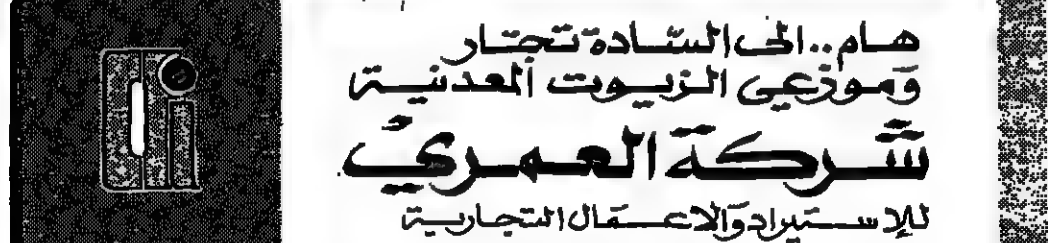 هـام.. الى السّادة تجّار
وَموزعي الزيوت المعدنيـة
شركة العمري
للاستيراد والاعمال التجارية